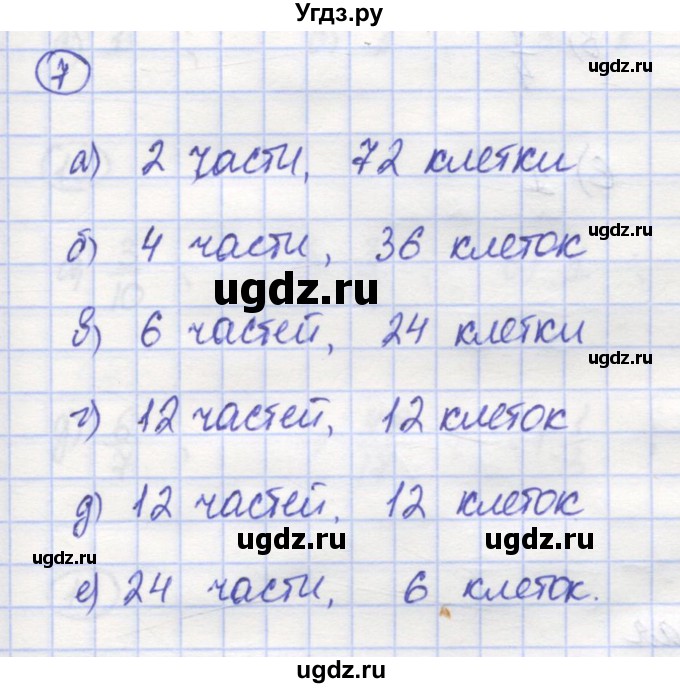 Угдз.ру
ugdz.ru
7
а) 2 части, 72 клетки
ugdz.ru
б) 4 части, 36 клеток
ugdz.ru
ugdz.ru
в) 6 частей, 24 клетки
ugdz.ru
г) 12 частей, 12 клеток
д) 12 частей, 12 клеток
ugdz.ru
ugdz.ru
ugdz.ru
е) 24 части, 6 клеток.
ugdz.ru